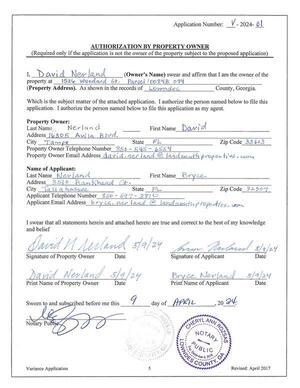 Application Number: V - 2024-01
AUTHORIZATION BY PROPERTY OWNER
(Required only if the application is not the owner of the property subject to the proposed application)
I, David Nerland (Owner's Name) swear and affirm that I am the owner of the
property at
(Property Address). As shown in the records of Lowndes County, Georgia.
Which is the subject matter of the attached application. I authorize the person named below to file this
application. I authorize the person named below to file this application as my agent.
Property Owner:
Last Name Nerland First Name David
Address Blvd.
City Tampa State FL Zip Code
Property Owner Telephone Number
Property Owner Email Address david.nerland@
Name of Applicant:
Last Name Nerland First Name Bryce
Address
City Tallahassee State FL Zip Code
Applicant Telephone Number
Applicant Email Address bryce.nerland@
I swear that all statements herein and attached hereto are true and correct to the best of my knowledge
and belief
David N Nerland 5/9/24 5/9/24
Signature of Property Owner Date Signature of Applicant Date
David Nerland 5/9/24 Bryce Nerland 5/9/24
Print Name of Property Owner Date Print Name of Applicant Date
Sworn and subscribed before me this 9 day of APRIL, 2024
Notary Public
NOTARY
PUBLIC
LOWNDES COUNTY, GA
Variance Application 5 Revised: April 2017